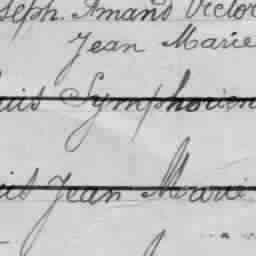 seph. Amand Victor
Jean Marie
uis Symphorien
is Jean Marie